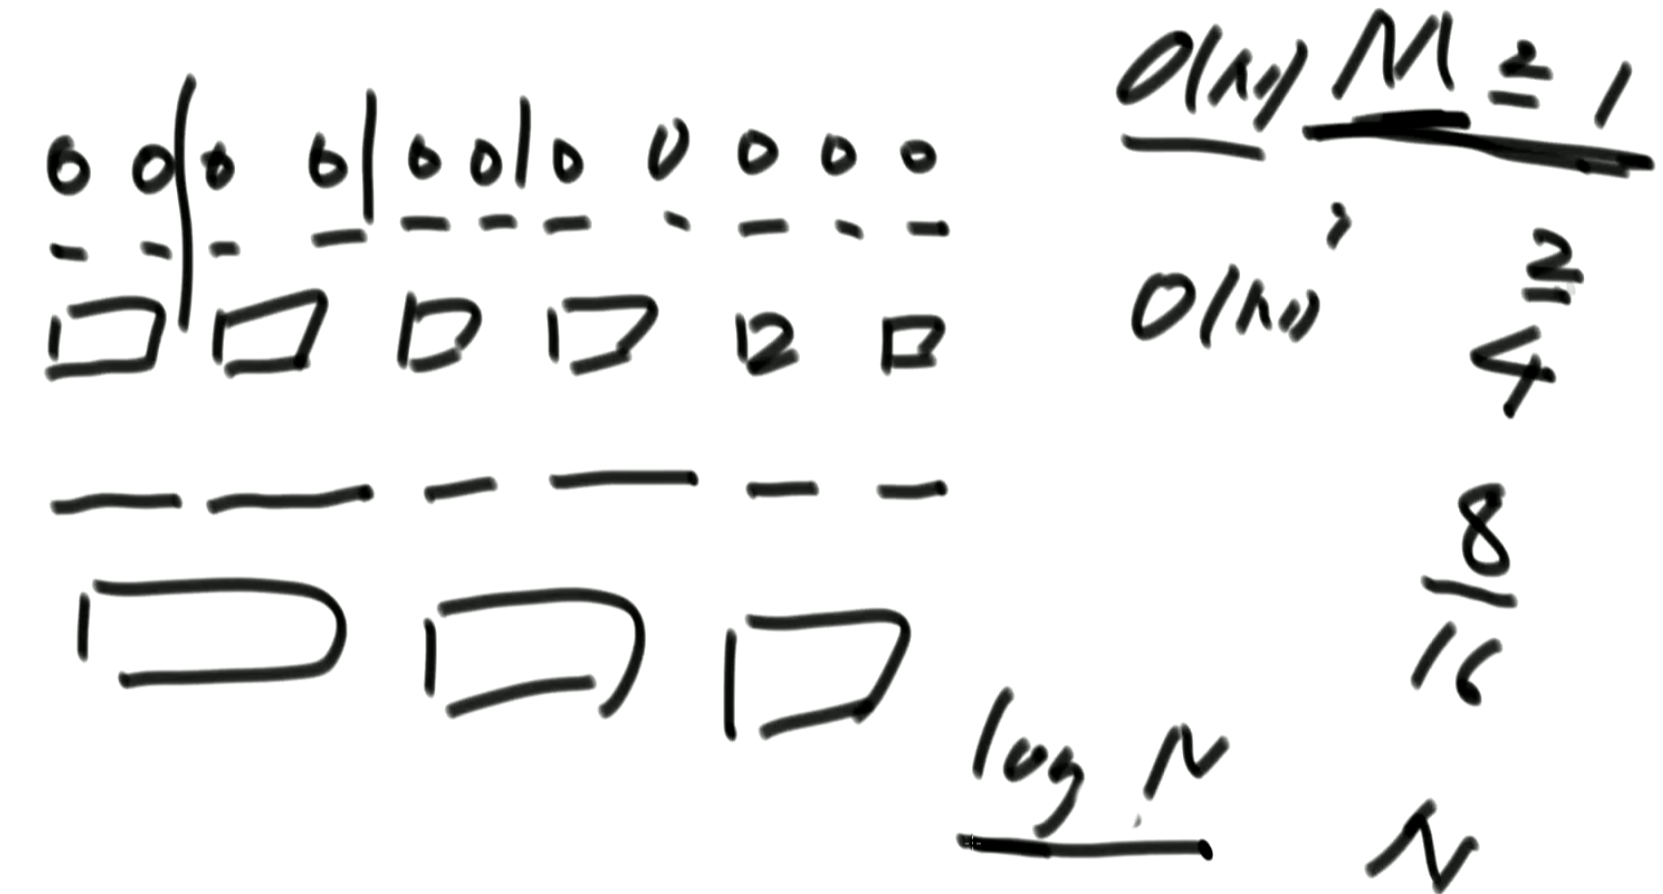 0 0 0 0 0 0 0 0 0 0 0
O(N) M = 1
2
O(N)
2
4
8
16
log N
N